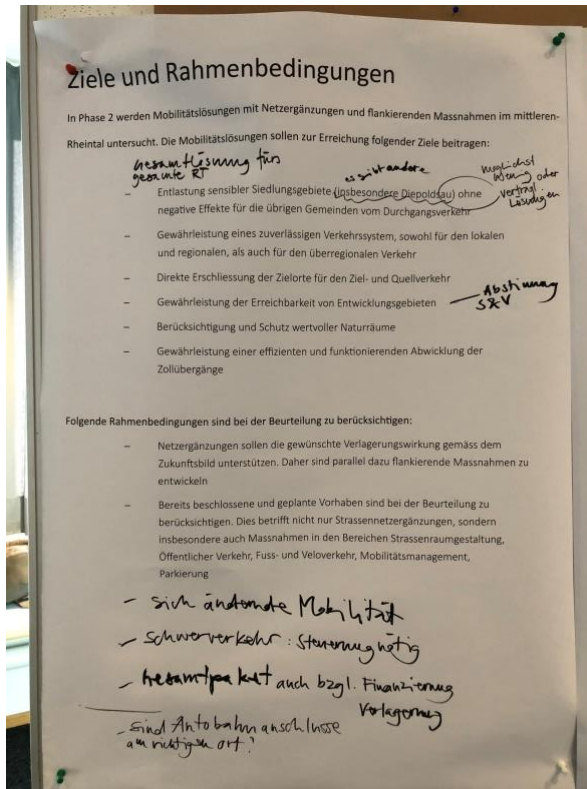 Ziele und Rahmenbedingungen
In Phase 2 werden Mobilitätslösungen mit Netzergänzungen und flankierenden Massnahmen im mittleren-
Rheintal untersucht. Die Mobilitätslösungen sollen zur Erreichung folgender Ziele beitragen:
Gesamtlösung fürs
gesamte RT
es gibt andere
möglichst
wenig oder
verträgl.
Lösungen
– Entlastung sensibler Siedlungsgebiete (insbesondere Diepoldsau) ohne
negative Effekte für die übrigen Gemeinden vom Durchgangsverkehr
– Gewährleistung eines zuverlässigen Verkehrssystem, sowohl für den lokalen
und regionalen, als auch für den überregionalen Verkehr
– Direkte Erschliessung der Zielorte für den Ziel- und Quellverkehr
– Gewährleistung der Erreichbarkeit von Entwicklungsgebieten — Abstimmung
S&V
– Berücksichtigung und Schutz wertvoller Naturräume
– Gewährleistung einer effizienten und funktionierenden Abwicklung der
Zollübergänge
Folgende Rahmenbedingungen sind bei der Beurteilung zu berücksichtigen:
– Netzergänzungen sollen die gewünschte Verlagerungswirkung gemäss dem
Zukunftsbild unterstützen. Daher sind parallel dazu flankierende Massnahmen zu
entwickeln
– Bereits beschlossene und geplante Vorhaben sind bei der Beurteilung zu
berücksichtigen. Dies betrifft nicht nur Strassennetzergänzungen, sondern
insbesondere auch Massnahmen in den Bereichen Strassenraumgestaltung,
Öffentlicher Verkehr, Fuss- und Veloverkehr, Mobilitätsmanagement,
Parkierung
– sich ändernde Mobilität
– Schwerverkehr: Steuerung nötig
– Gesamtpaket auch bzgl. Finanzierung
Verlagerung
– Sind Autobahnanschlüsse
am richtigen Ort?